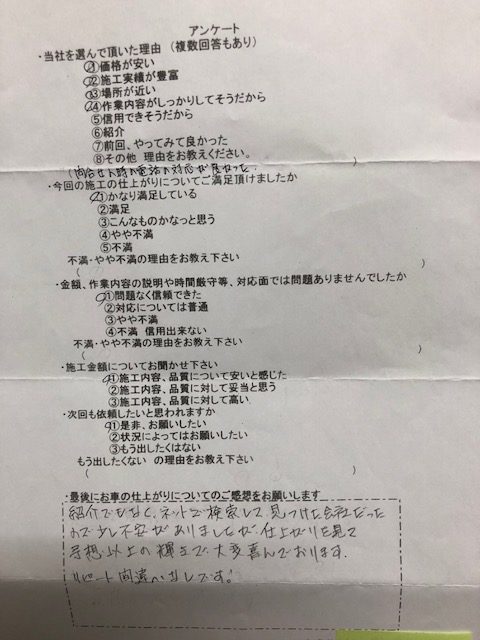 アンケート
・当社を選んで頂いた理由 (複数回答もあり)
①価格が安い
②施工実績が豊富
③場所が近い
④作業内容がしっかりしてそうだから
⑤信用できそうだから
⑥紹介
⑦前回、やってみて良かった
⑧その他 理由をお教えください。
(問合せ時の電話の対応が良かった。 )
・今回の施工の仕上がりについてご満足頂けましたか
①かなり満足している
②満足
③こんなものかなっと思う
④やや不満
⑤不満
不満・やや不満の理由をお教え下さい
( )
・金額、作業内容の説明や時間厳守等、対応面では問題ありませんでしたか
①問題なく信頼できた
②対応については普通
③やや不満
④不満 信用出来ない
不満・やや不満の理由をお教え下さい
( )
・施工金額についてお聞かせ下さい
①施工内容、品質について安いと感じた
②施工内容、品質に対して妥当と思う
③施工内容、品質に対して高い
・次回も依頼したいと思われますか
①是非、お願いしたい
②状況によってはお願いしたい
③もう出したくはない
もう出したくない の理由をお教え下さい
( )
・最後にお車の仕上がりについてのご感想をお願いします
紹介でもなく、ネットで検索して見つけた会社だった
ので少し不安がありましたが、仕上がりを見て
予想以上の輝きで大変喜んでおります。
リピート間違いなしです!